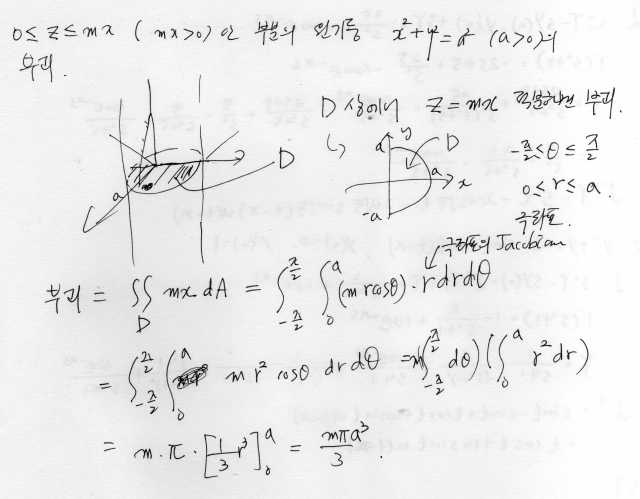 0 ≤ z ≤ mx ( mx>0 ) 인 부분의 원기둥 x²+y²=a² (a>0)의
부피.
D 상에서 z = mx 적분하면 부피.
D
a
a y D
a x
-a
-π/2 ≤ θ ≤ π/2
0 ≤ r ≤ a.
극좌표.
극좌표의 Jacobian
부피 = ∬_D mx dA = ∫_{-π/2}^{π/2} ∫_0^a (m r cosθ)· r dr dθ
= ∫_{-π/2}^{π/2} ∫_0^a m r² cosθ dr dθ = m(∫_{-π/2}^{π/2} dθ)(∫_0^a r² dr)
= m · π · [1/3 r³]_0^a = mπa³/3 .